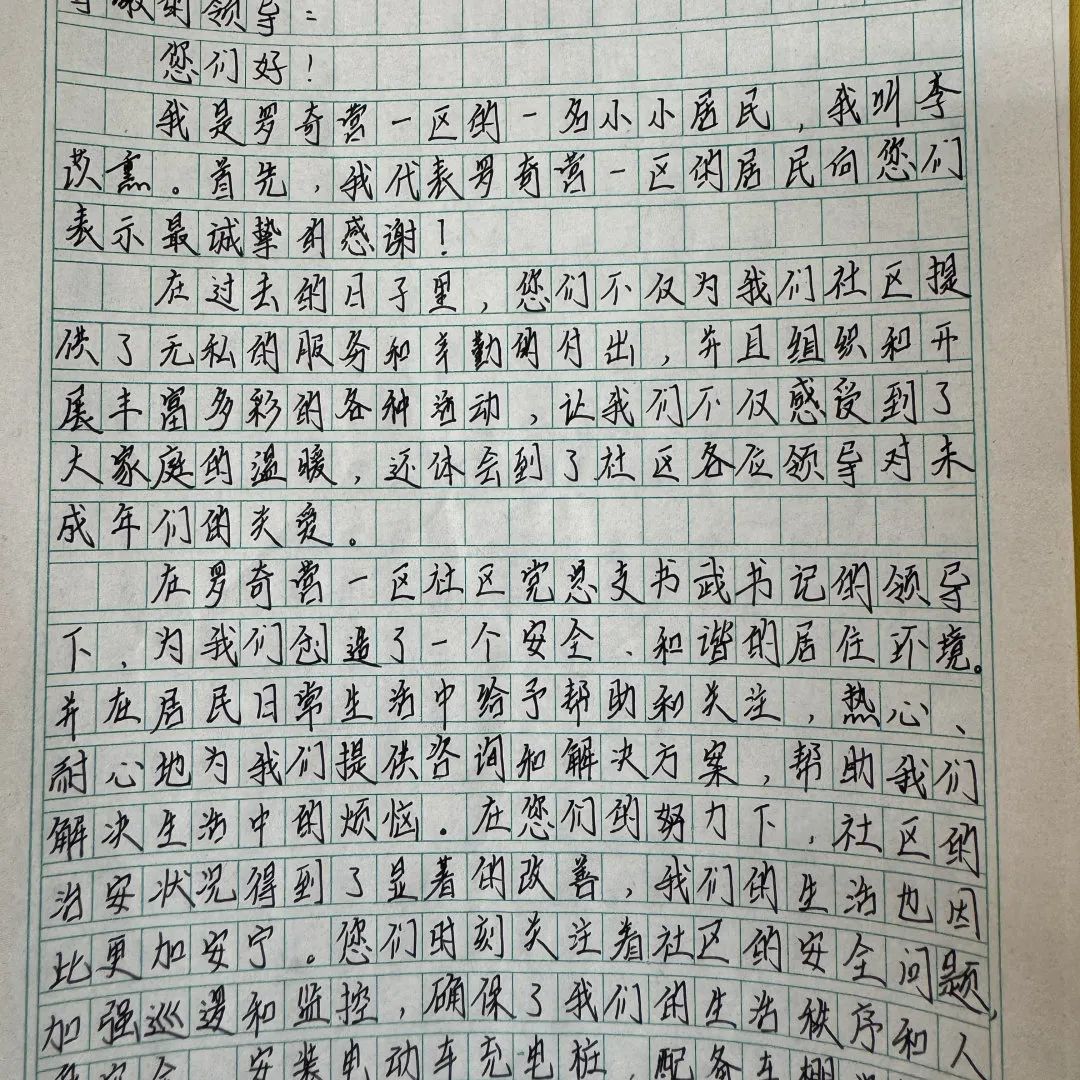 尊敬的领导：
您们好！
我是罗奇营一区的一名小小居民，我叫李
苡熏。首先，我代表罗奇营一区的居民向您们
表示最诚挚的感谢！
在过去的日子里，您们不仅为我们社区提
供了无私的服务和辛勤的付出，并且组织和开
展丰富多彩的各种活动，让我们不仅感受到了
大家庭的温暖，还体会到了社区各位领导对未
成年们的关爱。
在罗奇营一区社区党总支书武书记的领导
下，为我们创造了一个安全、和谐的居住环境。
并在居民日常生活中给予帮助和关注，热心、
耐心地为我们提供咨询和解决方案，帮助我们
解决生活中的烦恼。在您们的努力下，社区的
治安状况得到了显著的改善，我们的生活也因
此更加安宁。您们时刻关注着社区的安全问题，
加强巡逻和监控，确保了我们的生活秩序和人
安全 安装电动车充电桩，配备车棚